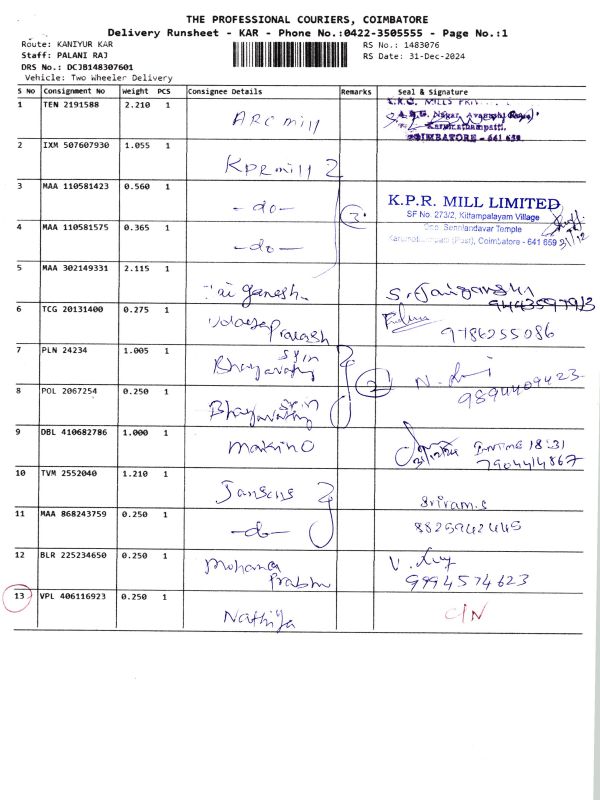 THE PROFESSIONAL COURIERS, COIMBATORE
Delivery Runsheet - KAR - Phone No.:0422-3505555 - Page No.:1
Route: KANIYUR KAR
RS No.: 1483076
Staff: PALANI RAJ
RS Date: 31-Dec-2024
DRS No.: DCJB148307601
Vehicle: Two Wheeler Delivery
S No Consignment No Weight PCS Consignee Details Remarks Seal & Signature
1 TEN 2191588 2.210 1 ARC mill
MILLS
Nagar,
COIMBATORE - 641 659
2 IXM 507607930 1.055 1 KPR mill
3 MAA 110581423 0.560 1 -do- 3
K.P.R. MILL LIMITED
SF No. 273/2, Kittampalayam Village
Temple
(Post), Coimbatore - 641 659
31/12
4 MAA 110581575 0.365 1 -do-
5 MAA 302149331 2.115 1 Jai Ganesh S. Jaiganesh
6 TCG 20131400 0.275 1 Udaya Prakash 9786255086
7 PLN 24234 1.005 1 Bhagavathy Spin
2
9894409423
8 POL 2067254 0.250 1 Bhagavathy Spin
9 DBL 410682786 1.000 1 makino 31/12/24 INTIME 18:31
7904414867
10 TVM 2552040 1.210 1 Jansons Sriram.s
11 MAA 868243759 0.250 1 -do- 8825942445
12 BLR 225234650 0.250 1 Mohana Prabhu
9994574623
13 VPL 406116923 0.250 1 Nathiya C/N